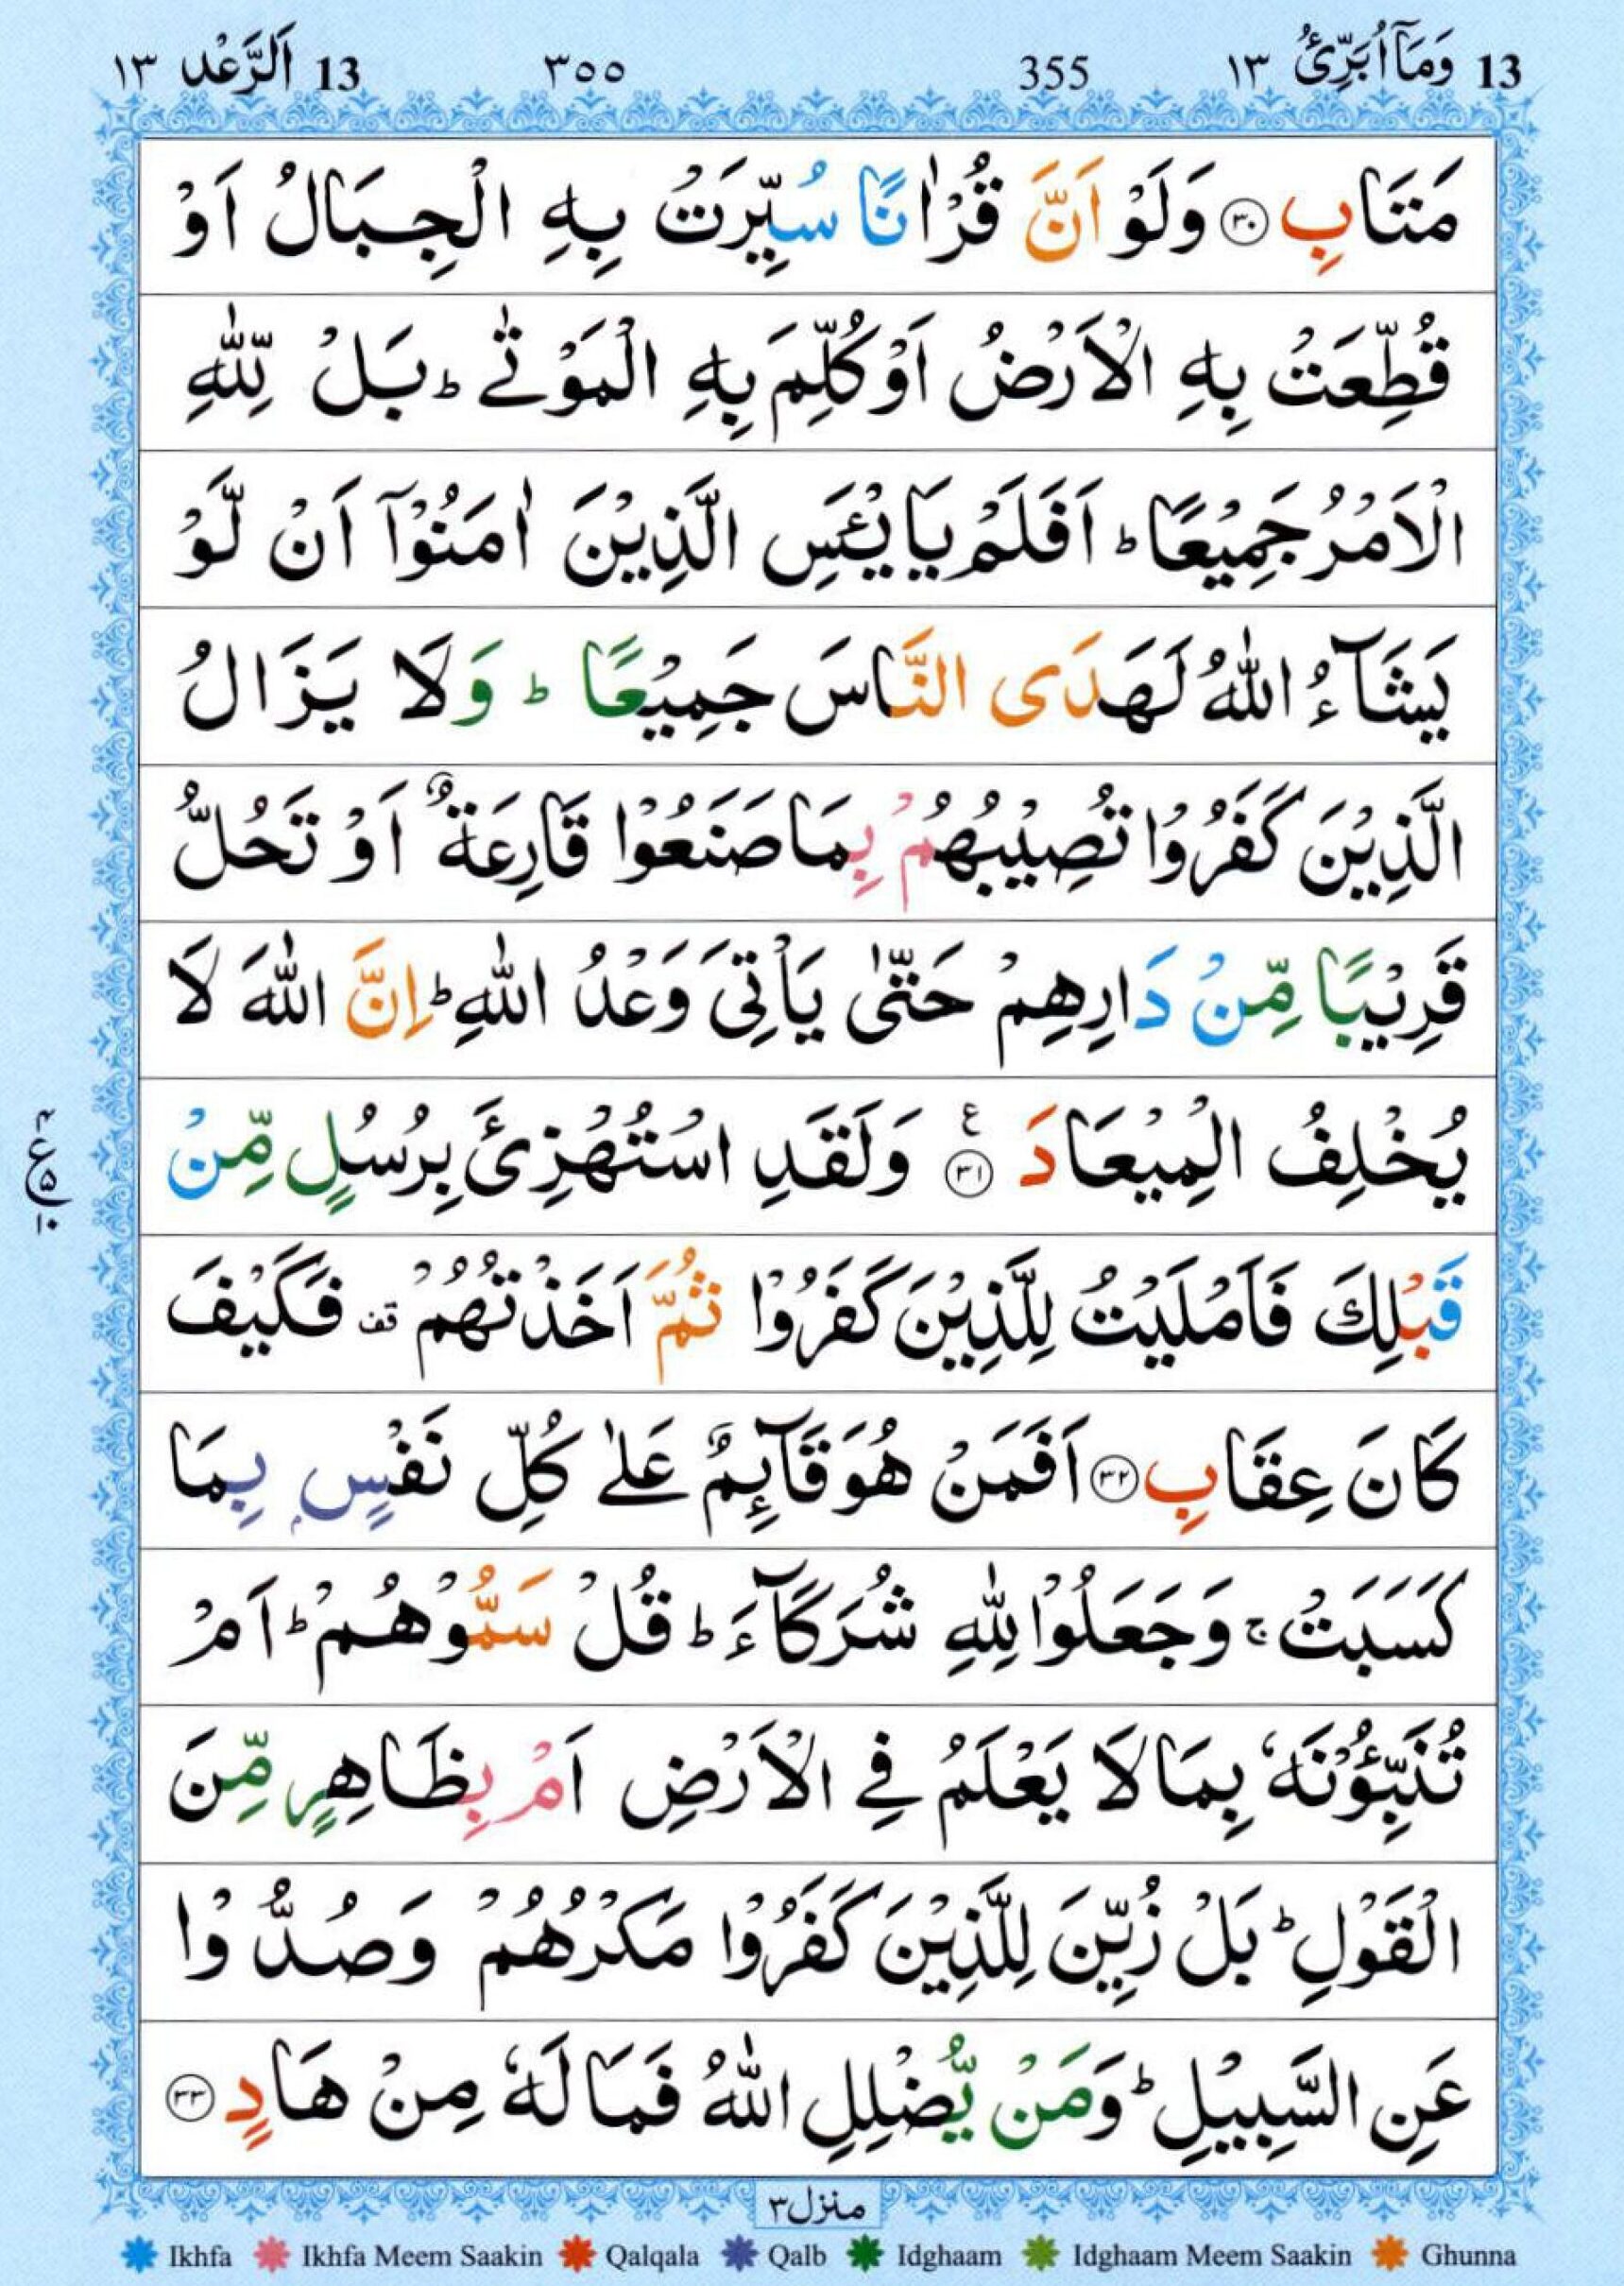 13 وَمَآ اُبَرِّئُ ١٣ 355 ٣٥٥ 13 اَلرَّعْد ١٣
مَتَابِ ﴿٣٠﴾ وَلَوْ اَنَّ قُرْاٰنًا سُيِّرَتْ بِهِ الْجِبَالُ اَوْ
قُطِّعَتْ بِهِ الْاَرْضُ اَوْ كُلِّمَ بِهِ الْمَوْتٰى ؕ بَلْ لِّلّٰهِ
الْاَمْرُ جَمِيْعًا ؕ اَفَلَمْ يَايْـَٔسِ الَّذِيْنَ اٰمَنُوْۤا اَنْ لَّوْ
يَشَآءُ اللّٰهُ لَهَدَى النَّاسَ جَمِيْعًا ؕ وَلَا يَزَالُ
الَّذِيْنَ كَفَرُوْا تُصِيْبُهُمْ بِمَا صَنَعُوْا قَارِعَةٌ اَوْ تَحُلُّ
قَرِيْبًا مِّنْ دَارِهِمْ حَتّٰى يَاْتِىَ وَعْدُ اللّٰهِ ؕ اِنَّ اللّٰهَ لَا
يُخْلِفُ الْمِيْعَادَ ﴿٣١﴾ ع وَلَقَدِ اسْتُهْزِئَ بِرُسُلٍ مِّنْ
قَبْلِكَ فَاَمْلَيْتُ لِلَّذِيْنَ كَفَرُوْا ثُمَّ اَخَذْتُهُمْ قف فَكَيْفَ
كَانَ عِقَابِ ﴿٣٢﴾ اَفَمَنْ هُوَ قَآئِمٌ عَلٰى كُلِّ نَفْسٍۭ بِمَا
كَسَبَتْ ۚ وَجَعَلُوْا لِلّٰهِ شُرَكَآءَ ؕ قُلْ سَمُّوْهُمْ ؕ اَمْ
تُنَبِّـُٔوْنَهٗ بِمَا لَا يَعْلَمُ فِى الْاَرْضِ اَمْ بِظَاهِرٍ مِّنَ
الْقَوْلِ ؕ بَلْ زُيِّنَ لِلَّذِيْنَ كَفَرُوْا مَكْرُهُمْ وَصُدُّوْا
عَنِ السَّبِيْلِ ؕ وَمَنْ يُّضْلِلِ اللّٰهُ فَمَا لَهٗ مِنْ هَادٍ ﴿٣٣﴾
٤ ع ٥ ١٠
منزل ٣
Ikhfa Ikhfa Meem Saakin Qalqala Qalb Idghaam Idghaam Meem Saakin Ghunna